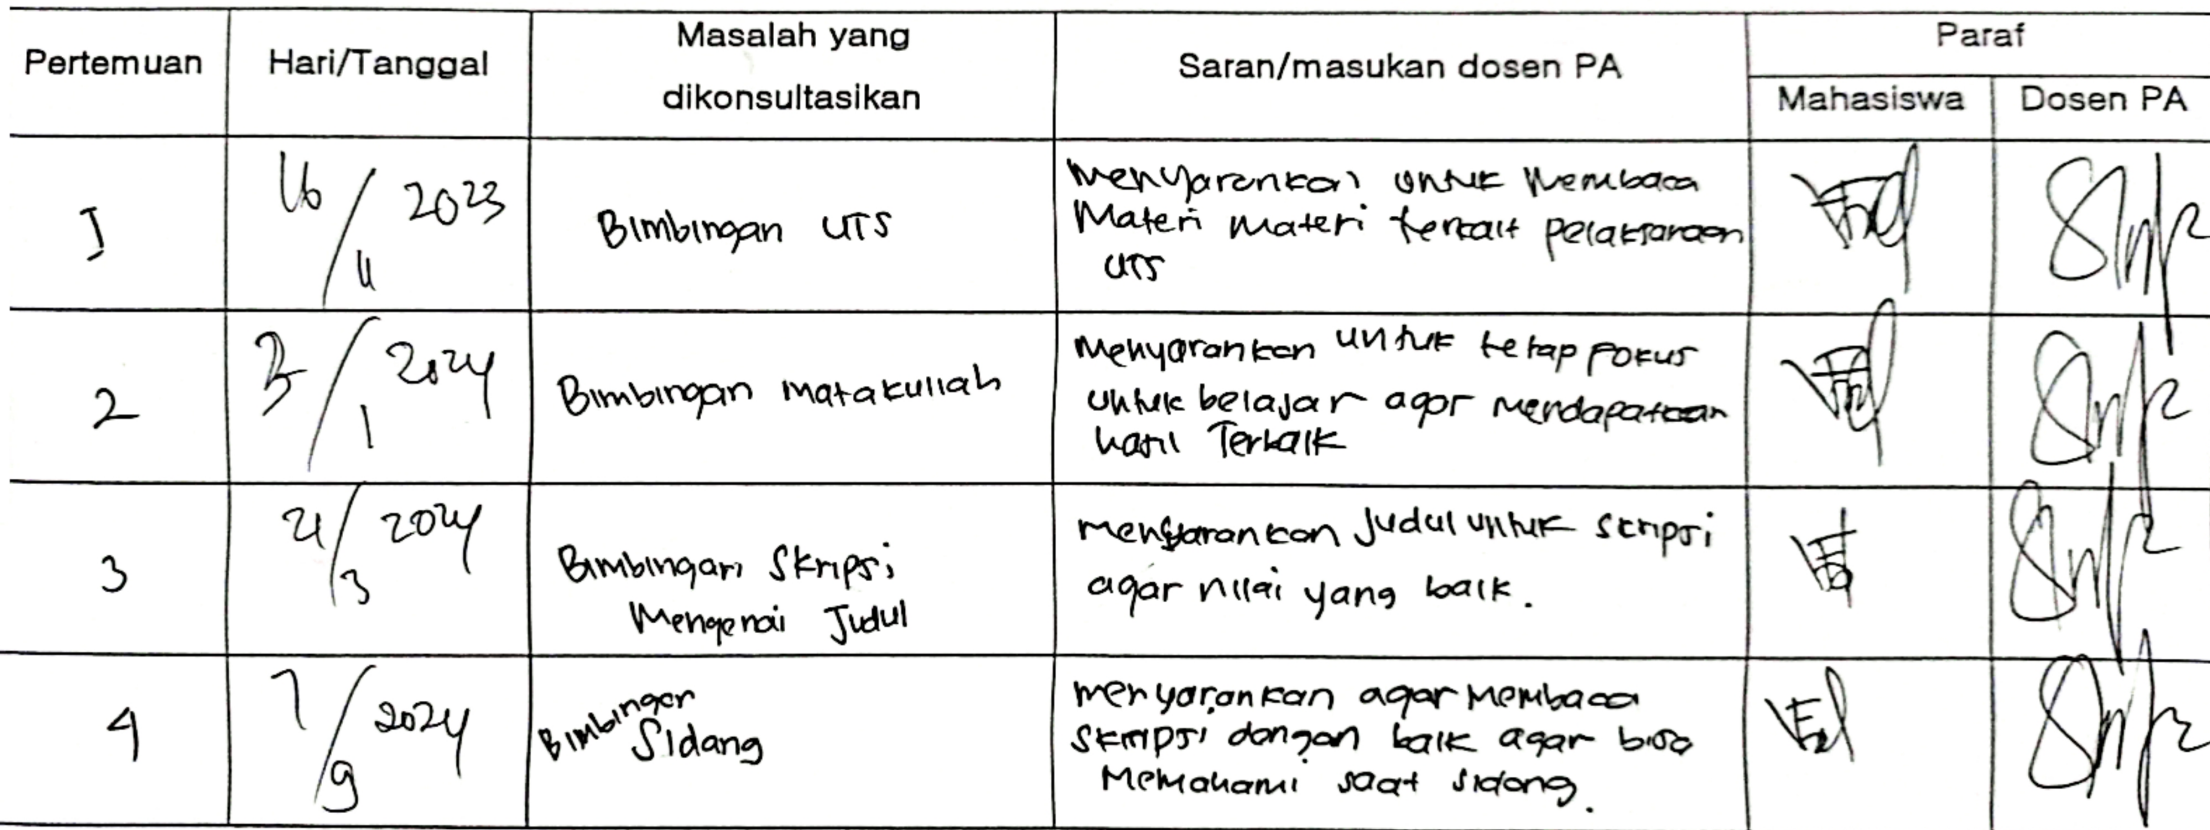 Pertemuan Hari/Tanggal Masalah yang dikonsultasikan Saran/masukan dosen PA Paraf
Mahasiswa Dosen PA
1 16/11 2023 Bimbingan UTS Menyarankan untuk Membaca
Materi materi terkait pelaksanaan
UTS
2 /1 2024 Bimbingan matakuliah Menyarankan untuk tetap fokus
untuk belajar agar mendapatkan
hasil Terbaik
3 21/3 2024 Bimbingan Skripsi
Mengenai Judul
menyarankan Judul untuk skripsi
agar nilai yang baik.
4 7/9 2024 Bimbingan
Sidang
menyarankan agar Membaca
skripsi dangan baik agar bisa
Memahami saat sidang.